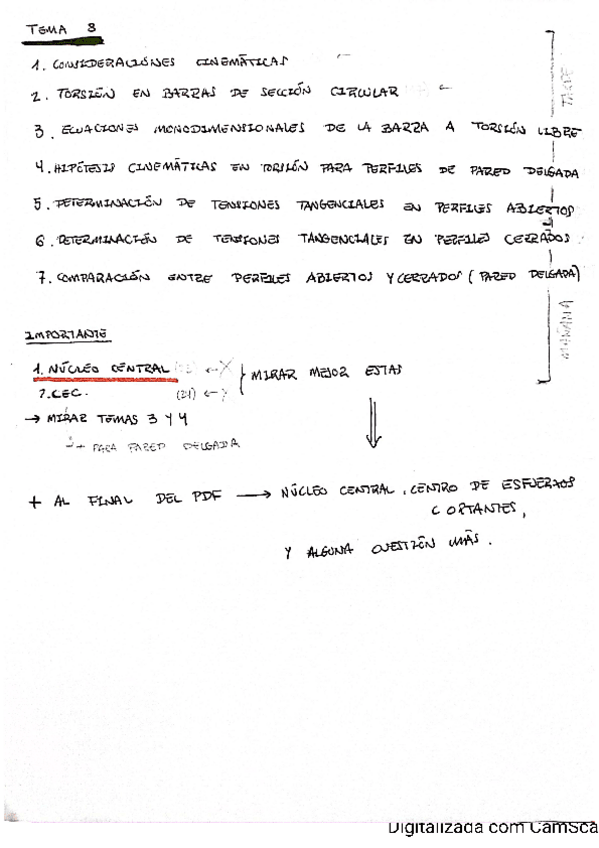 TEMA 8
1. CONSIDERACIONES CINEMÁTICAS
2. TORSIÓN EN BARRAS DE SECCIÓN CIRCULAR
3. ECUACIONES MONODIMENSIONALES DE LA BARRA A TORSIÓN LIBRE
4. HIPÓTESIS CINEMÁTICAS EN TORSIÓN PARA PERFILES DE PARED DELGADA
5. DETERMINACIÓN DE TENSIONES TANGENCIALES EN PERFILES ABIERTOS
6. DETERMINACIÓN DE TENSIONES TANGENCIALES EN PERFILES CERRADOS
7. COMPARACIÓN ENTRE PERFILES ABIERTOS Y CERRADOS (PARED DELGADA)
IMPORTANTE
1. NÚCLEO CENTRAL ← X
2. CEC. (21) ← ?
} MIRAR MEJOR ESTAS
→ MIRAR TEMAS 3 Y 4
+ PARA PARED DELGADA
+ AL FINAL DEL PDF → NÚCLEO CENTRAL, CENTRO DE ESFUERZOS
CORTANTES,
Y ALGUNA CUESTIÓN MÁS.
Digitalizada com CamSca